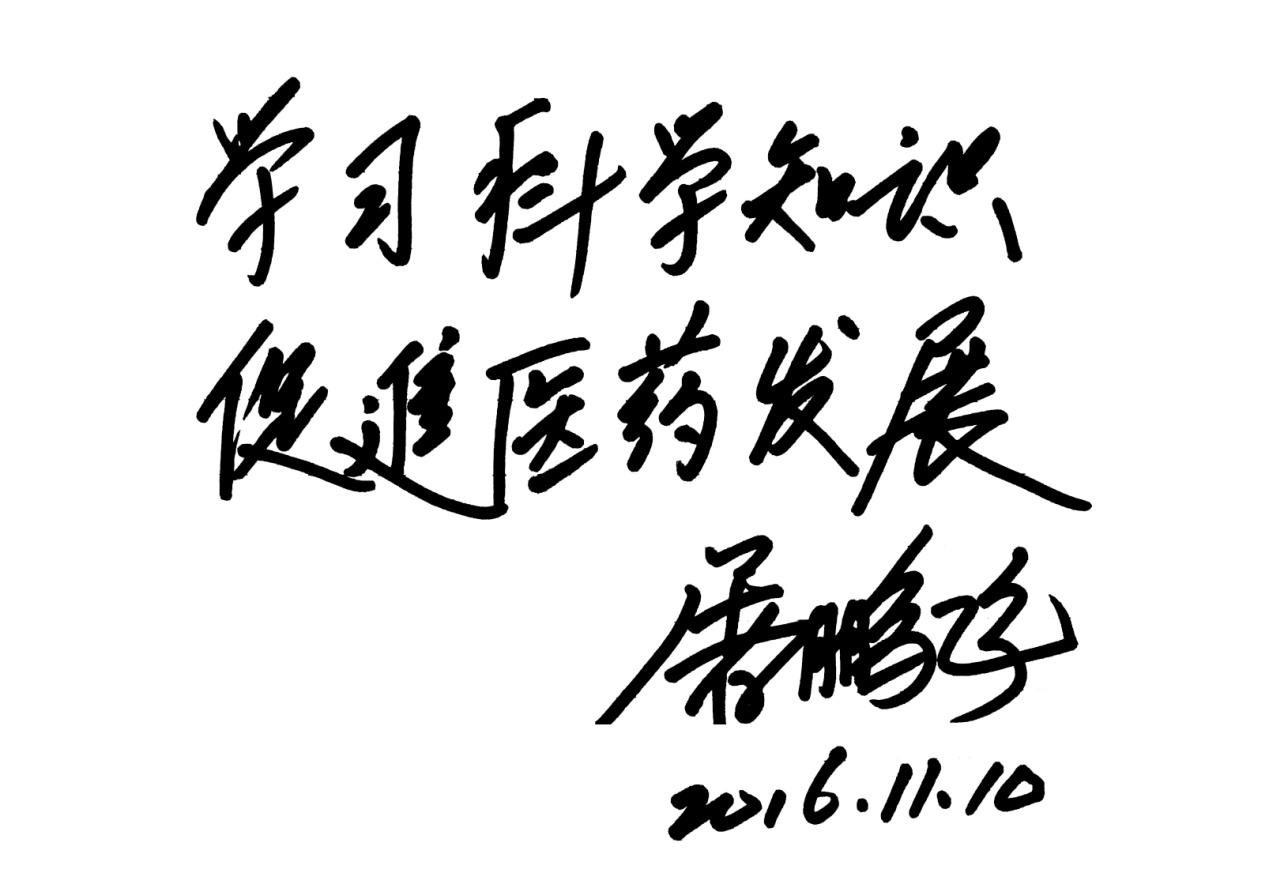 学习科学知识
促进医药发展
屠鹏飞
2016.11.10